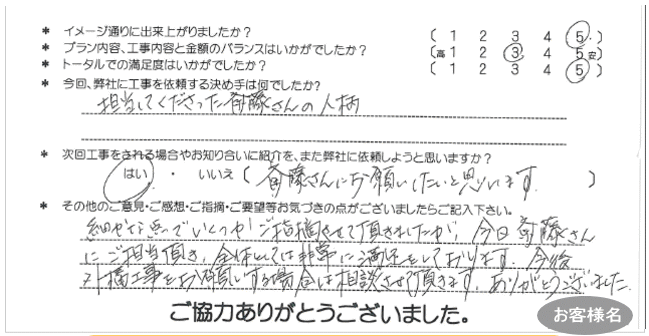 * イメージ通りに出来上がりましたか? ( 1 2 3 4 5 )
* プラン内容、工事内容と金額のバランスはいかがでしたか? (高 1 2 3 4 5 安)
* トータルでの満足度はいかがでしたか? ( 1 2 3 4 5 )
* 今回、弊社に工事を依頼する決め手は何でしたか?
担当してくださった斎藤さんの人柄
* 次回工事をされる場合やお知り合いに紹介を、また弊社に依頼しようと思いますか?
はい ・ いいえ ( 斎藤さんにお願いしたいと思います。 )
* その他のご意見・ご感想・ご指摘・ご要望等お気づきの点がございましたらご記入下さい。
細かな点でいくつかご指摘させて頂きましたが、今日斎藤さん
にご担当頂き、全体としては非常に満足をしております。今後
外構工事をお願いする場合は相談させて頂きます。ありがとうございました。
ご協力ありがとうございました。
お客様名